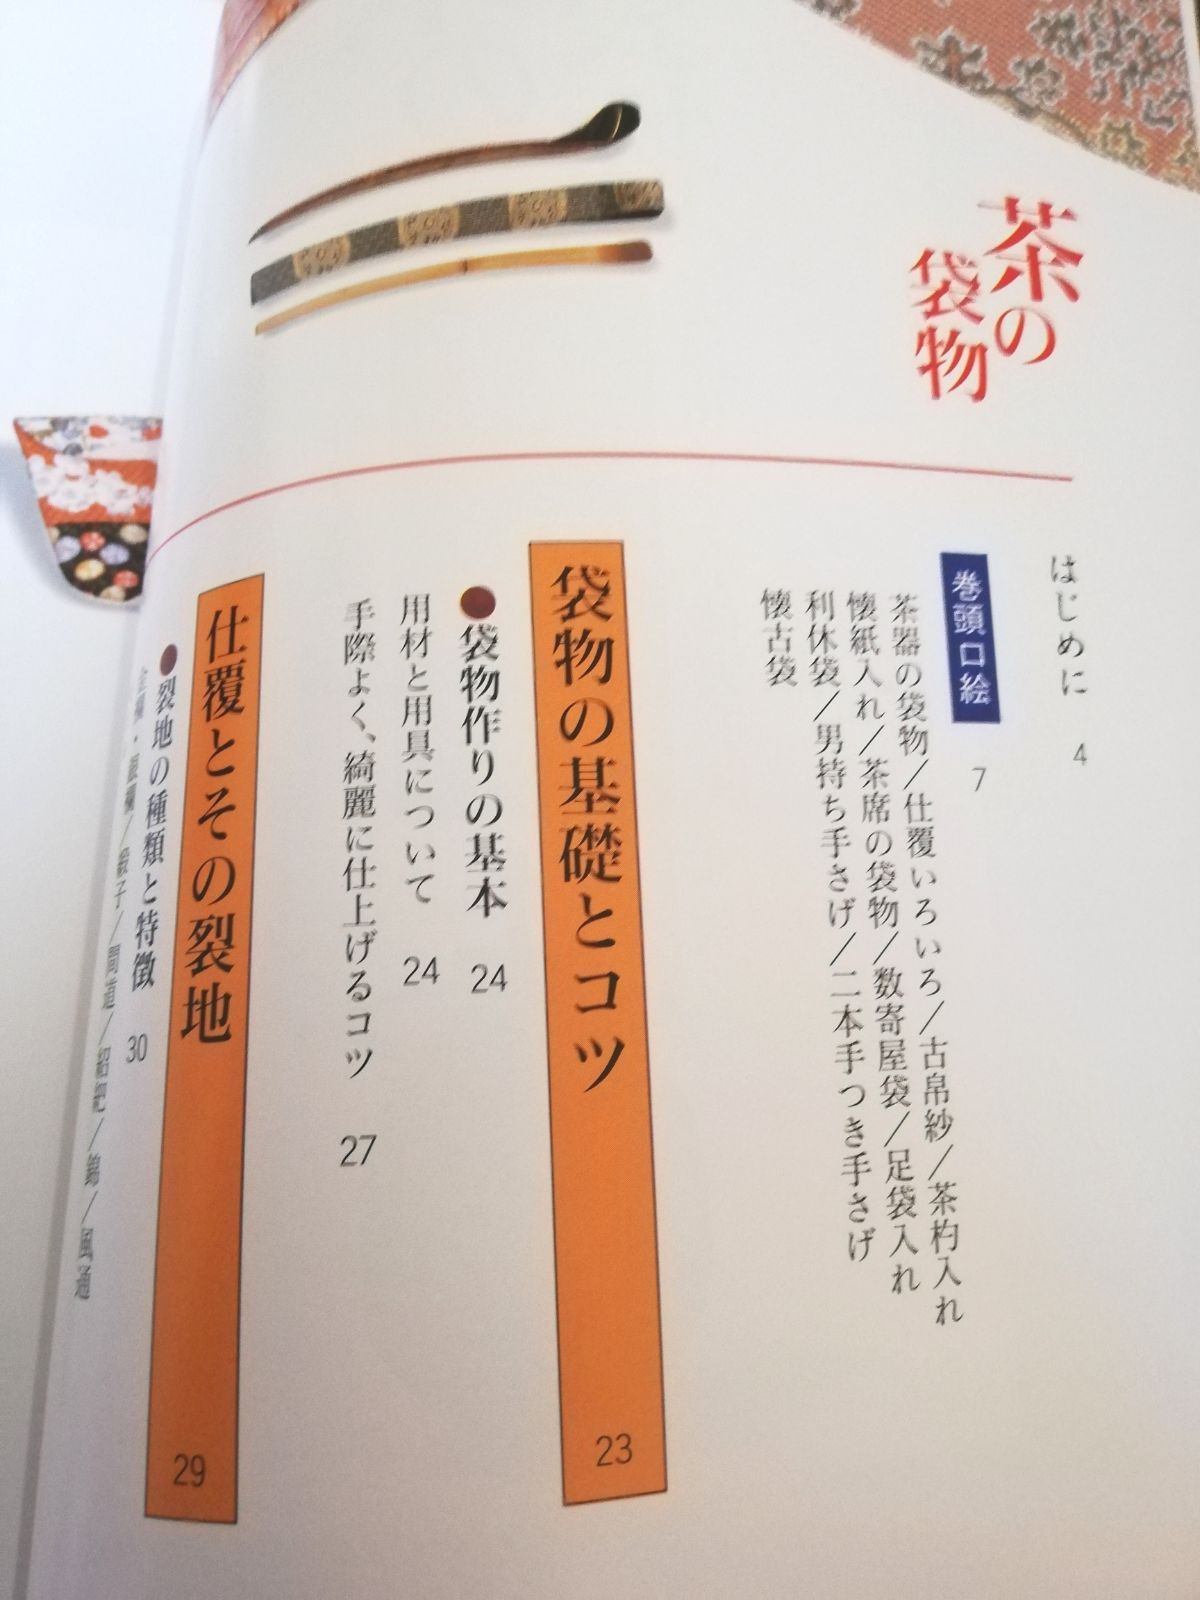 茶の
袋物
はじめに 4
巻頭口絵 7
茶器の袋物/仕覆いろいろ/古帛紗/茶杓入れ
懐紙入れ/茶席の袋物/数寄屋袋/足袋入れ
利休袋/男持ち手さげ/二本手つき手さげ
懐古袋
袋物の基礎とコツ 23
●袋物作りの基本 24
用材と用具について 24
手際よく、綺麗に仕上げるコツ 27
仕覆とその裂地 29
●裂地の種類と特徴 30
金襴・銀襴/緞子/間道/錦/風通